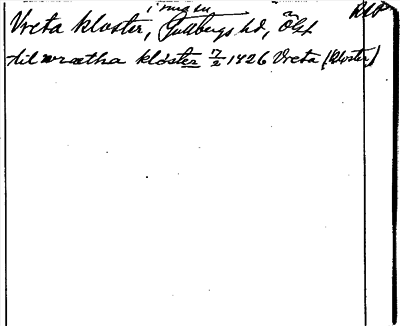 Vreta kloster, Gullbergs hd, Ögl
til wrætha kloster 7/2 1426 Vreta (kloster)